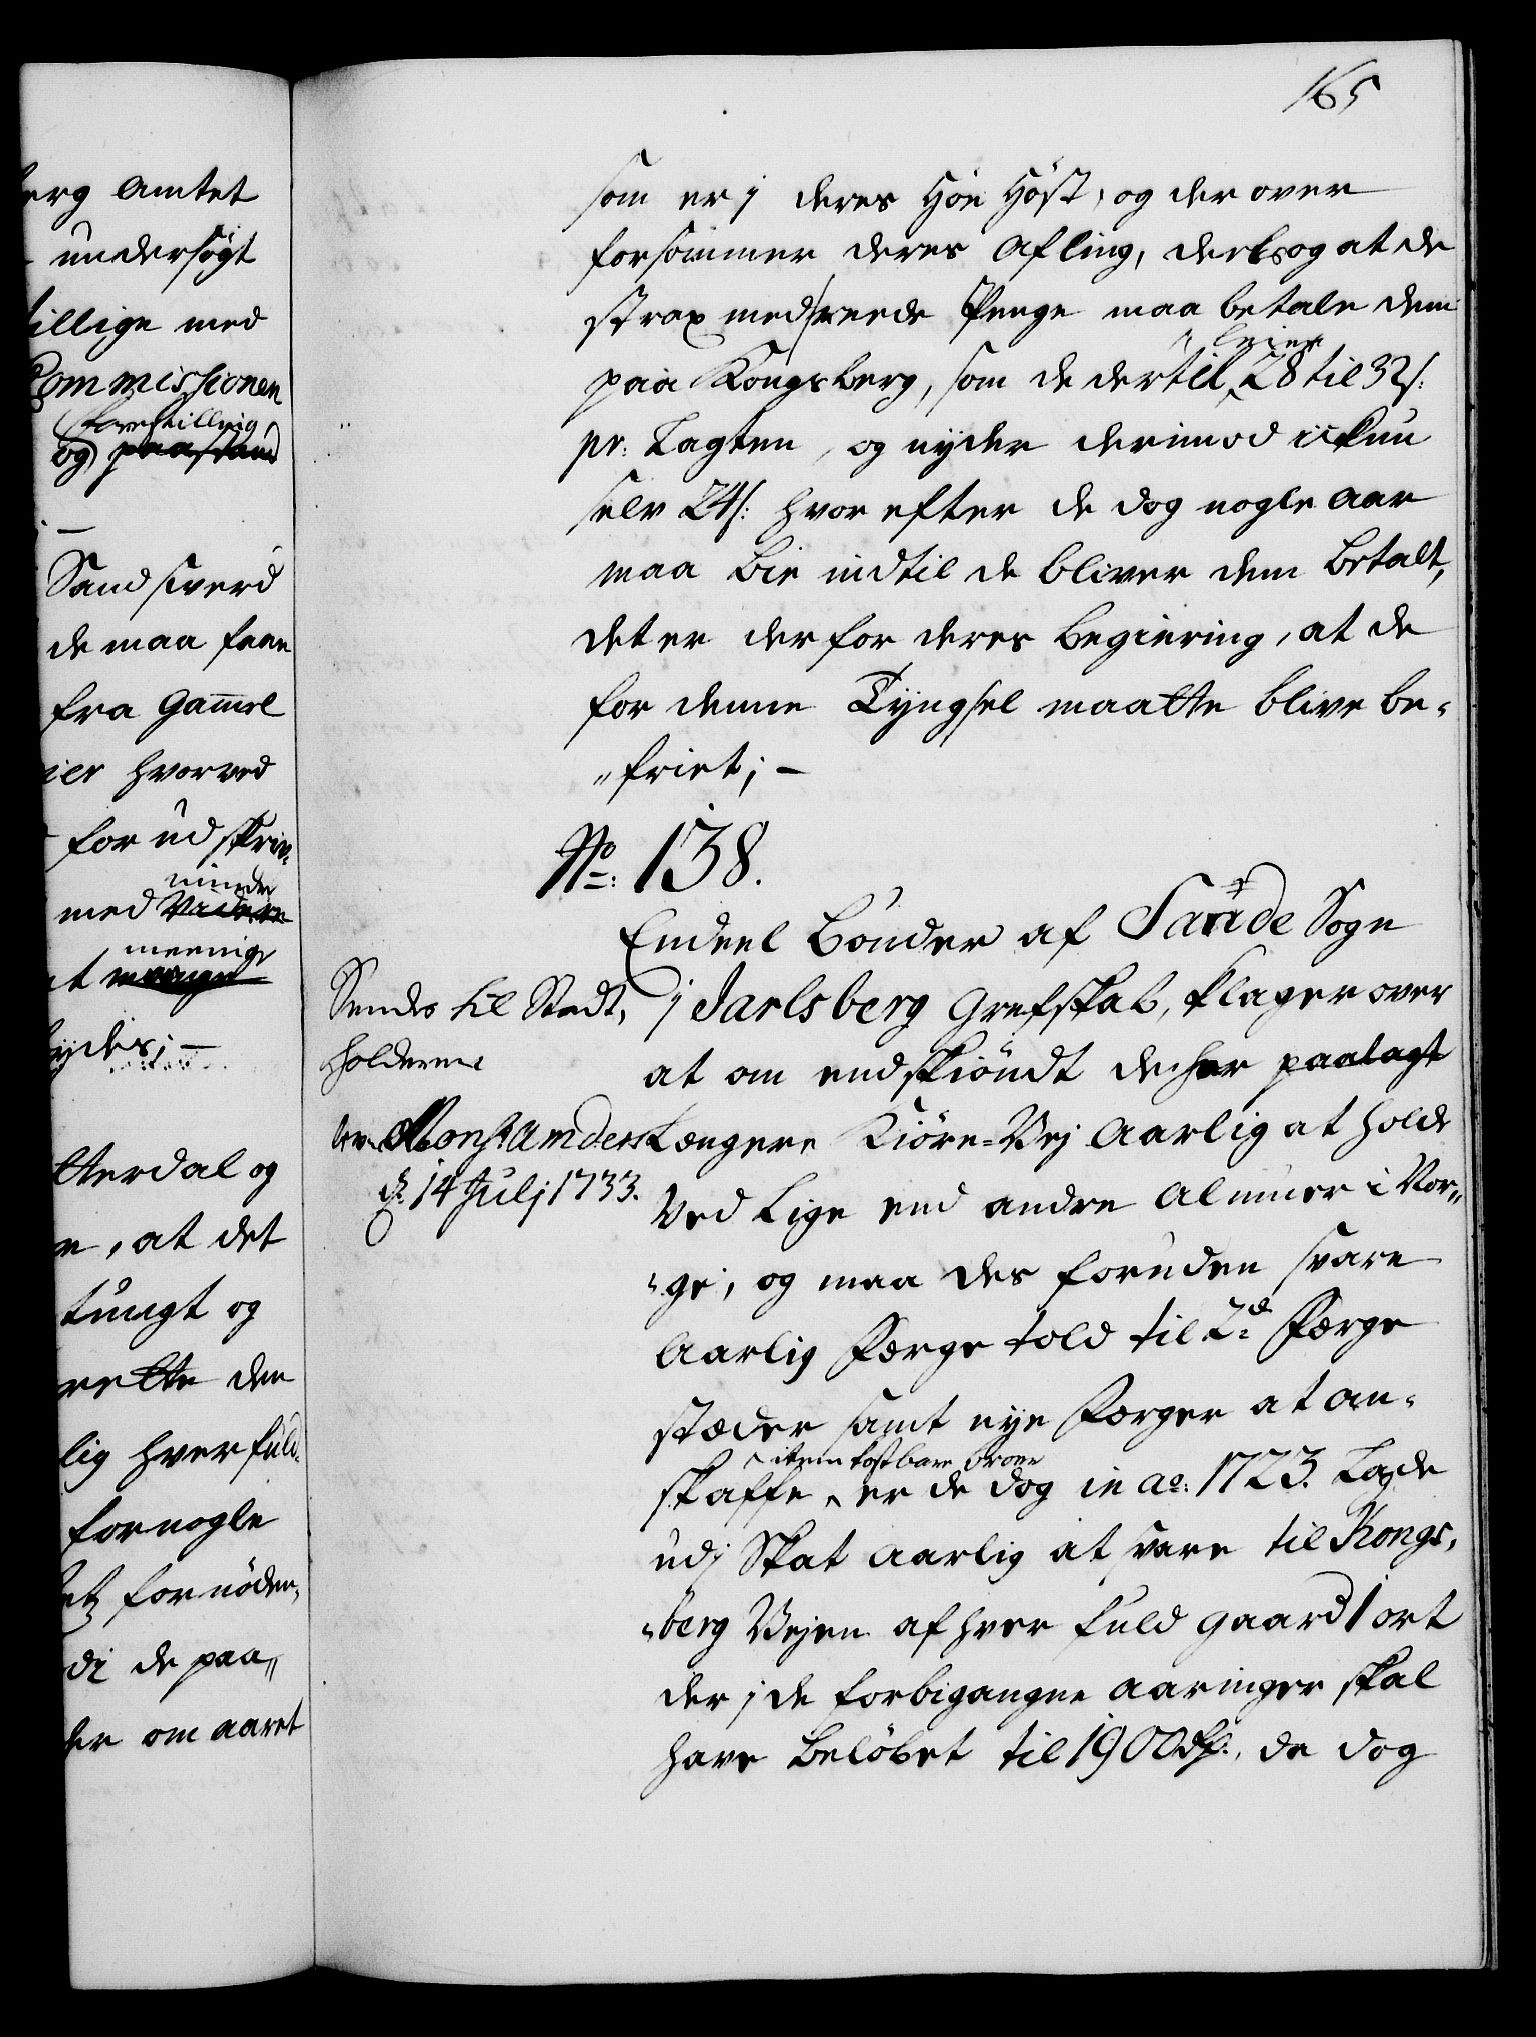 165
erg Amtet
undersøgt
tillige med
Commissionen
forestilling,
og paastand
Sandsverd
de maa faae
fra Gammel
ier hvorved
for udskriv-
minde
med
meenige
ydes; -
tterdal og
e, at det
tungt og
rette den
lig hver fuld-
for nogle
for nöden,
di de paa"
ler om aaret
som er j deres Höe Höst, og derover
forsömmer deres Afling, derhos og at de
strax med reede Penge maa betale dem
leier
paa Kongsberg, som de dertil 28 til 32 s:
pr: Lagten, og nyder derimod ickun
selv 24 s: hvorefter de dog nogle Aar
maa bie indtil de bliver dem betalt,
det er derfor deres Begiering, at de
for denne Tyngsel maatte blive be-
"friet; -
No: 138.
Endeel Bönder af Sande Sogn
j Jarlsberg Grefskab, klager over
at om endskiöndt de har paalagt
Længere Kiöre-Vej Aarlig at holde
Ved Lige end andre Almuer i Nor"
"ge, og maa des foruden svare
Aarlig Færge told til 2de Færge
stæder samt nye Færger at an-
item kostbare broer
skaffe er de dog in ao: 1723. Lagde
udj Skat aarlig at svare til Kongs-
"berg Vejen af hver fuld gaard 1 ort
der j de forbigangne Aaringer skal
have belöbet til 1900 rdr:, de dog
Sendes til Stadt-
holderne
lev: Mons: Amders
d: 14 Julj 1733.